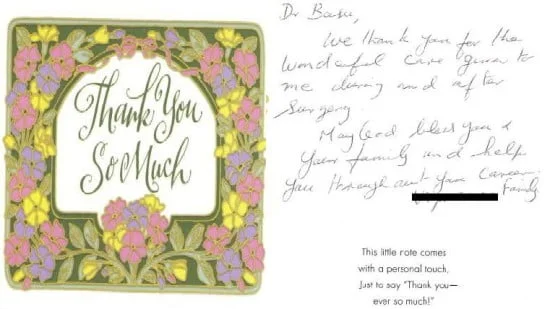 Thank You
So Much
Dr Basu,
We thank you for the
wonderful care given to
me during and after
Surgery.
May God bless you &
your family and help
you throughout your Career.
Family
This little note comes
with a personal touch,
Just to say "Thank you—
ever so much!"